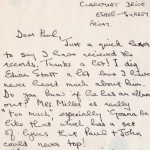 Claremont Drive
Esher - Surrey
Friday.
Dear Paul,
Just a quick letter
to say I have received the
records. Thanks a lot! I dig
Edwin Starr a lot but I have
never heard much about him.
Do you know if he has an album
out? Mrs. Miller is really
"too much", especially "Gonna be
like that" which has a couple
of lyrics that Paul + John
could never top!